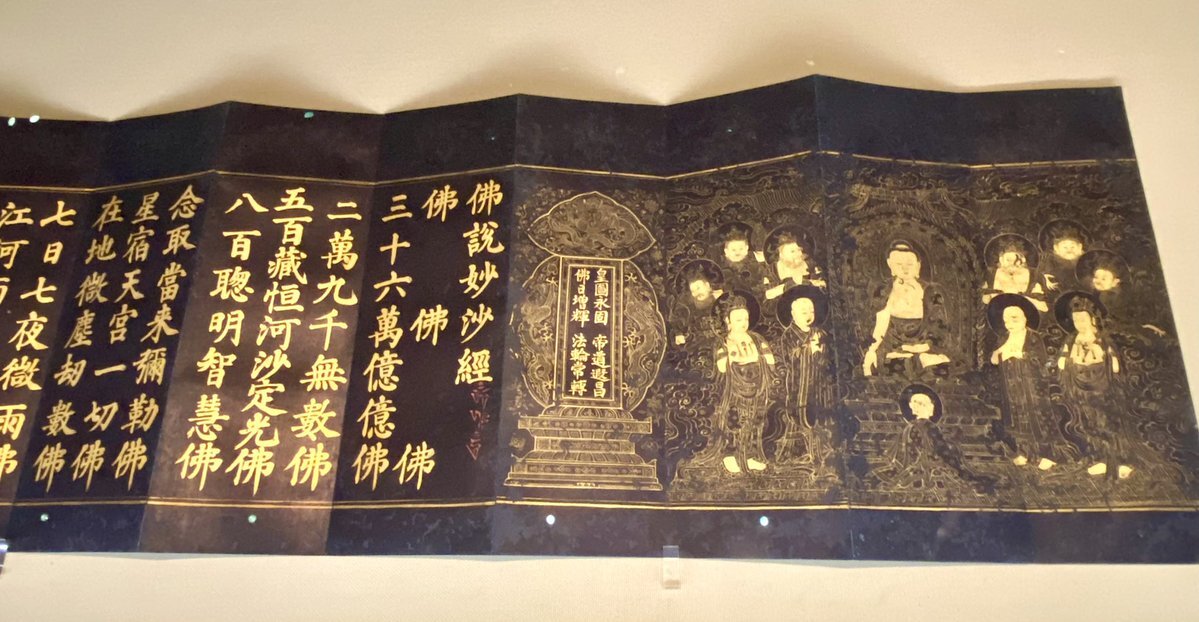 皇圖永固 帝道遐昌
佛日增輝 法輪常轉
佛說妙沙經
佛 佛 佛
三十六萬億億佛
二萬九千無數佛
五百藏恒河沙定光佛
八百聰明智慧佛
念取當来彌勒佛
星宿天宮一切佛
在地微塵劫數佛
七日七夜微雨佛
江河